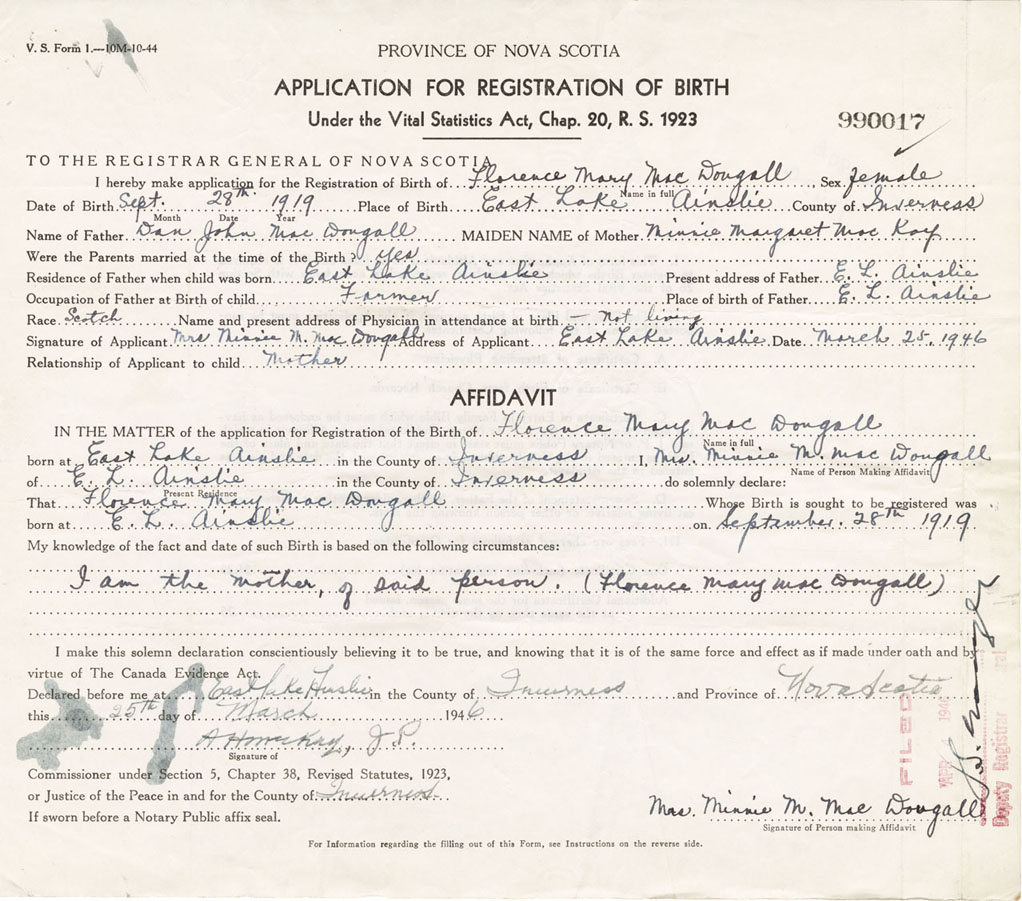 V. S. Form 1.—10M-10-44
PROVINCE OF NOVA SCOTIA
APPLICATION FOR REGISTRATION OF BIRTH
Under the Vital Statistics Act, Chap. 20, R. S. 1923
990017
TO THE REGISTRAR GENERAL OF NOVA SCOTIA
I hereby make application for the Registration of Birth of Florence Mary Mac Dougall, Sex female
Name in full
Date of Birth Sept. 28th 1919 Place of Birth East Lake Ainslie County of Inverness
Month Date Year
Name of Father Dan John Mac Dougall MAIDEN NAME of Mother Minnie Margaret Mac Kay
Were the Parents married at the time of the Birth? yes
Residence of Father when child was born East Lake Ainslie Present address of Father E. L. Ainslie
Occupation of Father at Birth of child Farmer Place of birth of Father E. L. Ainslie
Race Scotch Name and present address of Physician in attendance at birth — not living
Signature of Applicant Mrs Minnie M. Mac Dougall Address of Applicant East Lake Ainslie Date March 25, 1946
Relationship of Applicant to child Mother
AFFIDAVIT
IN THE MATTER of the application for Registration of the Birth of Florence Mary Mac Dougall
Name in full
born at East Lake Ainslie in the County of Inverness I, Mrs. Minnie M. Mac Dougall
Name of Person Making Affidavit
of E. L. Ainslie in the County of Inverness do solemnly declare:
Present Residence
That Florence Mary Mac Dougall Whose Birth is sought to be registered was
born at E. L. Ainslie on September 28th 1919
My knowledge of the fact and date of such Birth is based on the following circumstances:
I am the mother, of said person. (Florence Mary Mac Dougall)
I make this solemn declaration conscientiously believing it to be true, and knowing that it is of the same force and effect as if made under oath and by
virtue of The Canada Evidence Act.
Declared before me at East Lake Ainslie in the County of Inverness and Province of Nova Scotia
this 25th day of March 1946
J.P.
Signature of
Commissioner under Section 5, Chapter 38, Revised Statutes, 1923,
or Justice of the Peace in and for the County of Inverness
If sworn before a Notary Public affix seal.
Mrs. Minnie M. Mac Dougall
Signature of Person making Affidavit
For Information regarding the filling out of this Form, see Instructions on the reverse side.
FILED
APR 1946
Deputy Registrar